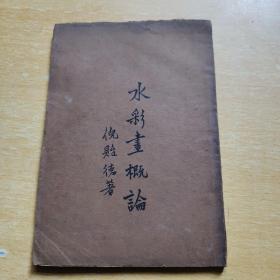 水彩畫概論
倪貽德著